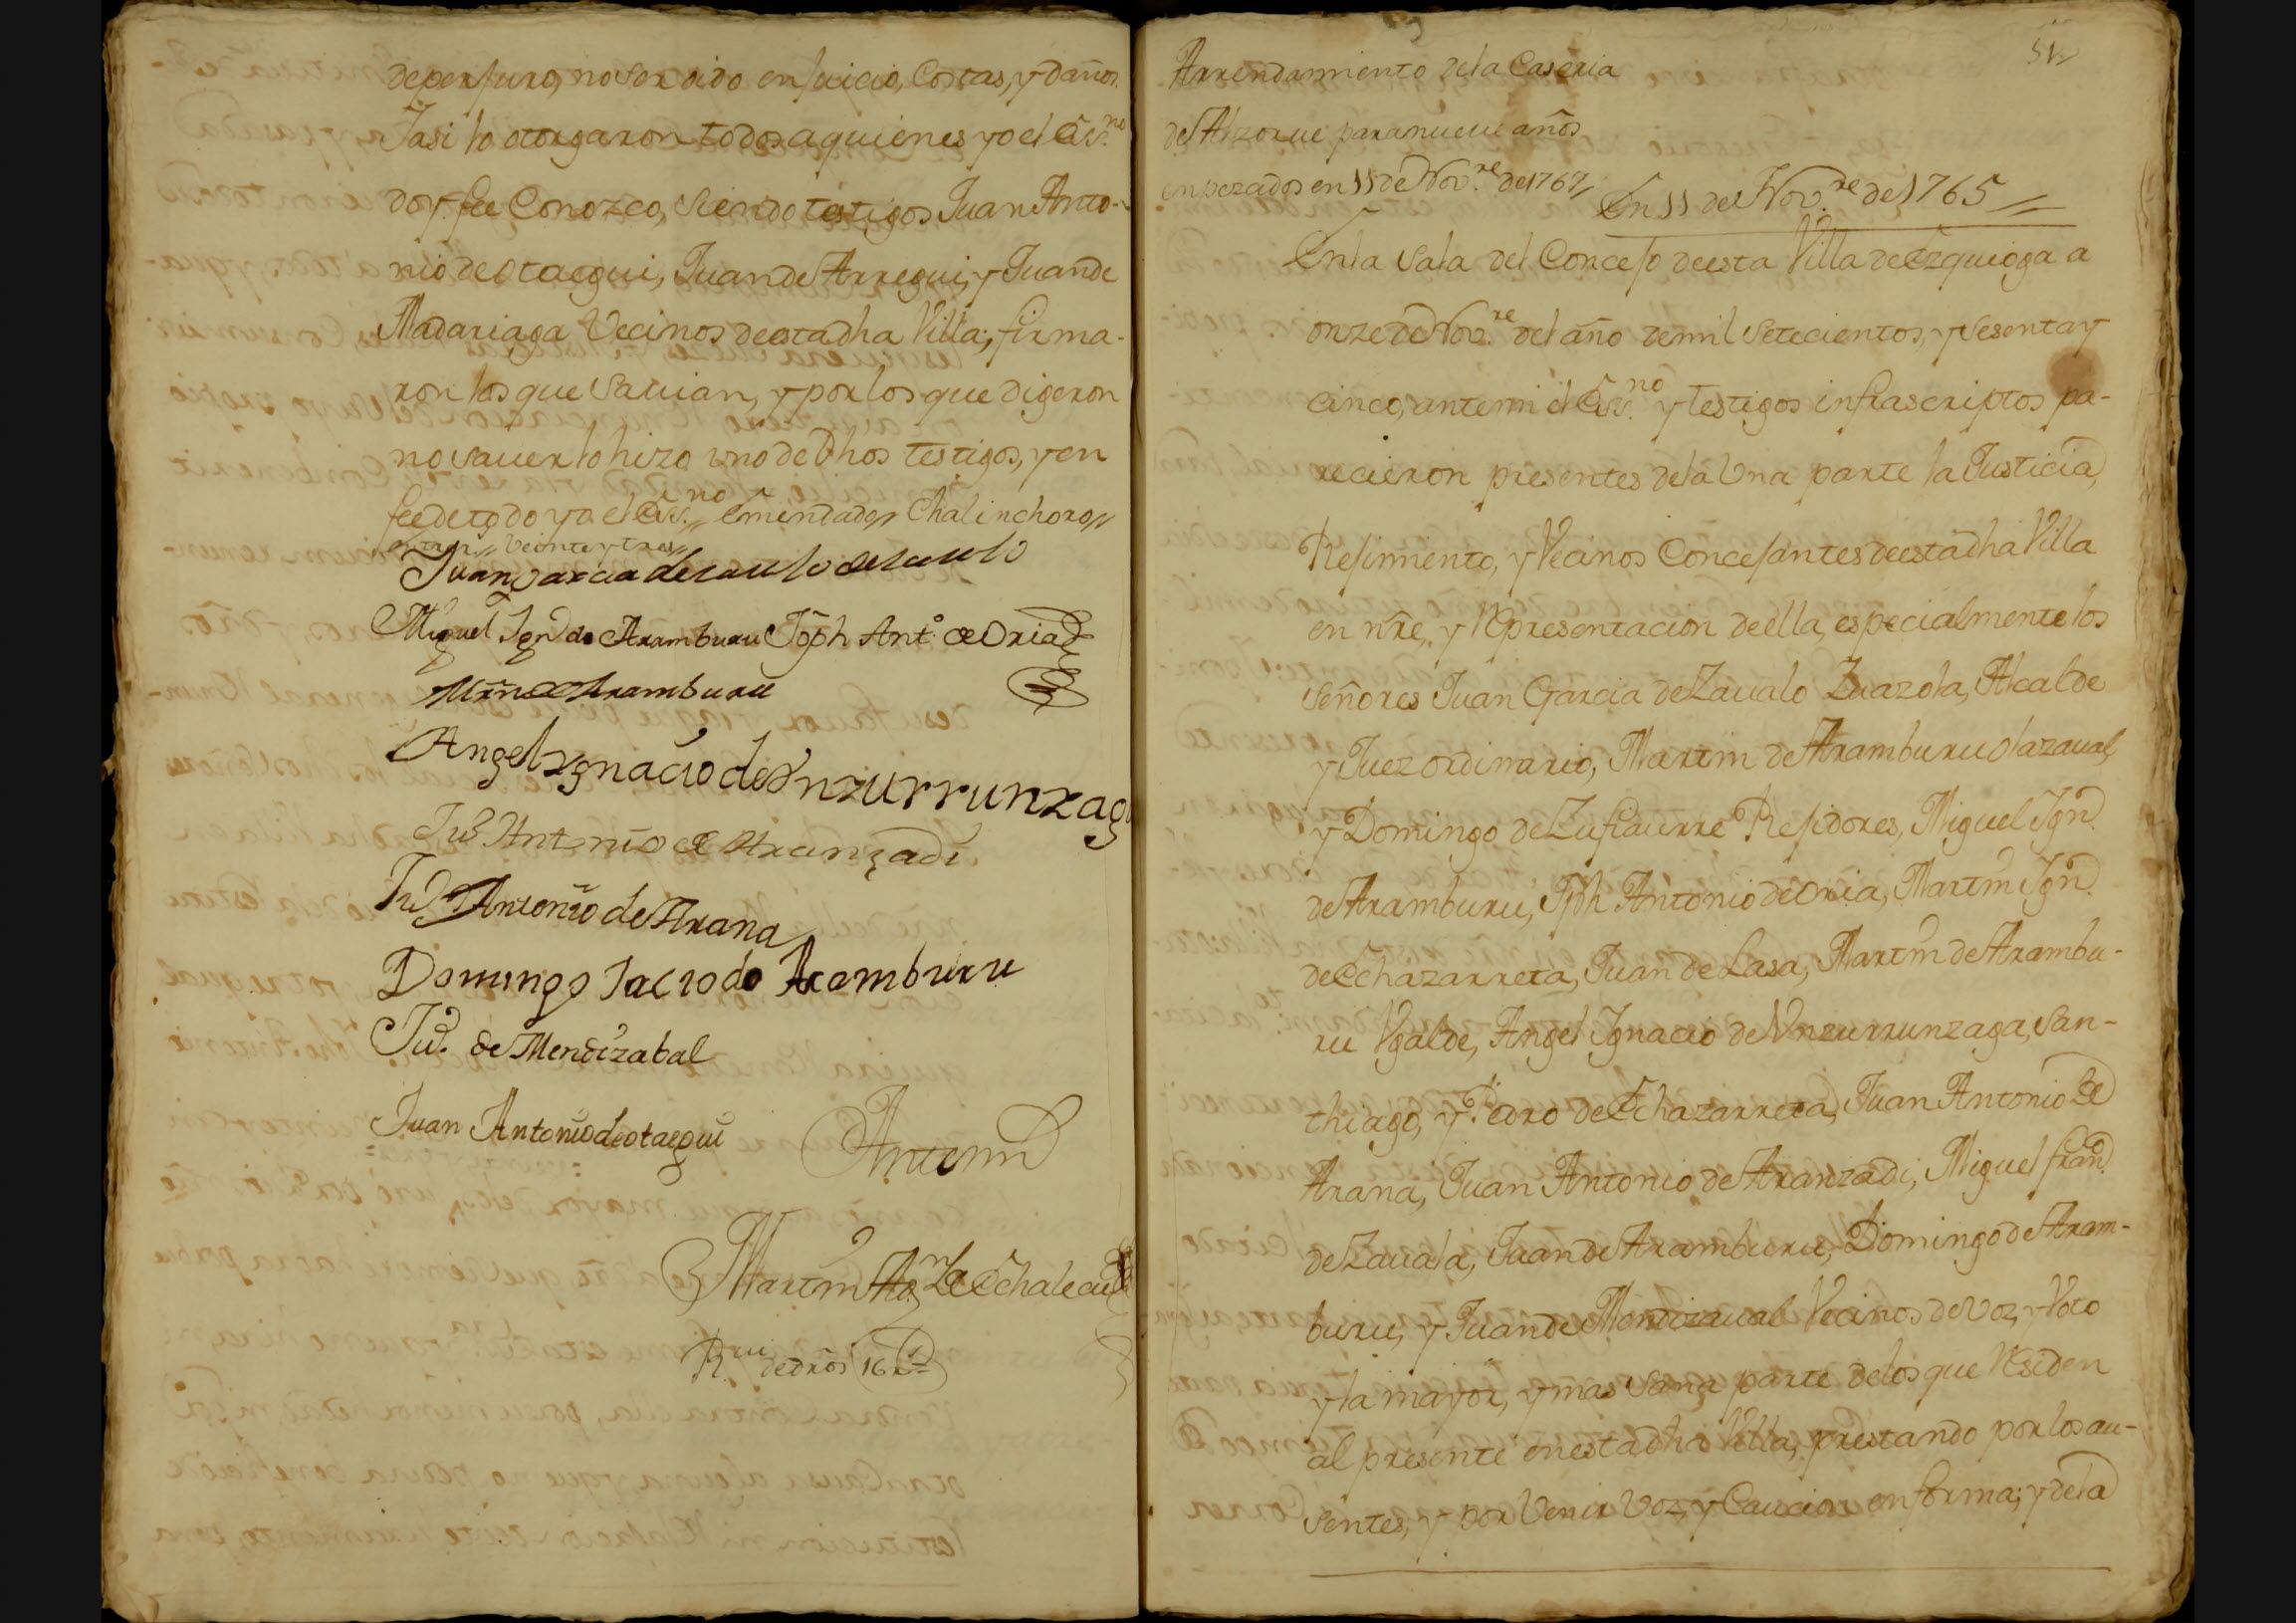 deperjuro, no ser oido en juicio, Costas, y daños.
Iasi lo otorgaron todos aquienes yo el Ess.no
doy fee Conozco, siendo testigos Juan Anto-
nio de Otaegui, Juan de Arregui, y Juan de
Madariaga Vecinos de esta dha Villa; firma-
ron los que savian, y por los que digeron
no saver lo hizo uno de dhos testigos, y en
fee de todo yo el Ess.no // emendado // Chalinchoro //
entrer.. // veinte y tres //
Juan Garcia de
Miguel Ign.o de Aramburu Joph Ant.o de Oria
Mrn de Aramburu
Angel Ygnacio de Vnzurrunzaga
Ju.o Antonio de Aranzadi
Ju.o Antonio de Arana
Domingo Iacio de Aramburu
Ju.o de Mendizabal
Juan Antonio de otaegui Antemi
Martin
R.vi de dros 16 r.s
51
Arrendamiento de la Caseria
de Alzorue para nueve años
enpezados en 11 de Nov.re de 1767 //
En 11 de Nov.re de 1765 //
En la Sala del Concejo de esta Villa de Ezquioga a
onze de Nov.re del año de mil setecientos, y sesenta y
cinco, ante mi el Ess.no y testigos infrascriptos pa-
recieron presentes de la Una parte la Justicia,
Rejimiento, y Vecinos Concejantes de esta dha Villa
en nre, y Representacion de ella, especialmente los
señores Juan Garcia de Zavalo Zuazola, Alcalde
y Juez ordinario, Martin de Aramburu olazaval,
y Domingo de Zufiaurre Rejidores, Miguel Ign.o
de Aramburu, Jph Antonio de Oria, Martin Ign.o
de Echazarreta, Juan de Lasa, Martin de Arambu-
ru Vgalde, Angel Ignacio de Vnzurrunzaga, San-
thiago, y Pedro de Echazarreta, Juan Antonio de
Arana, Juan Antonio de Aranzadi, Miguel fran.o
de Zavala, Juan de Aramburu, Domingo de Aram-
buru, y Juan de Mendizaval Vecinos de voz, y Voto
y la mayor, y mas sana parte de los que Residen
al presente en esta dha Villa, prestando por los au-
sentes, y por Venir Voz, y Caucion en forma; y de la